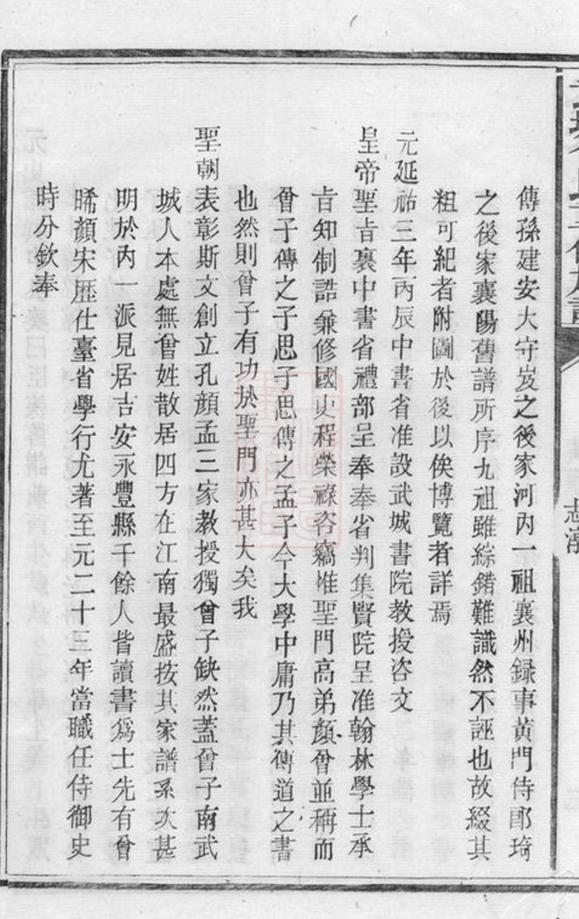 傳孫建安大守岌之後家河內一祖襄州録事黃門侍郎琦
之後家襄陽舊譜所序九祖雖綜錯難識然不誣也故綴其
粗可紀者附圖於後以俟博覽者詳焉
元延祐三年丙辰中書省准設武城書院教授咨文
皇帝聖㫖裏中書省禮部呈奉奉省判集賢院呈准翰林學士承
㫖知制誥兼修國史程榮祿咨竊惟聖門高弟顏曾並稱而
曾子傳之子思子思傳之孟子今大學中庸乃其傳道之書
也然則曾子有功於聖門亦甚大矣我
聖朝表彰斯文創立孔顏孟三家教授獨曾子缺然蓋曾子南武
城人本處無曾姓散居四方在江南最盛按其家譜系次甚
明於內一派見居吉安永豐縣千餘人皆讀書為士先有曾
晞顏宋歷仕臺省學行尤著至元二十三年當職任侍御史
時分欽奉